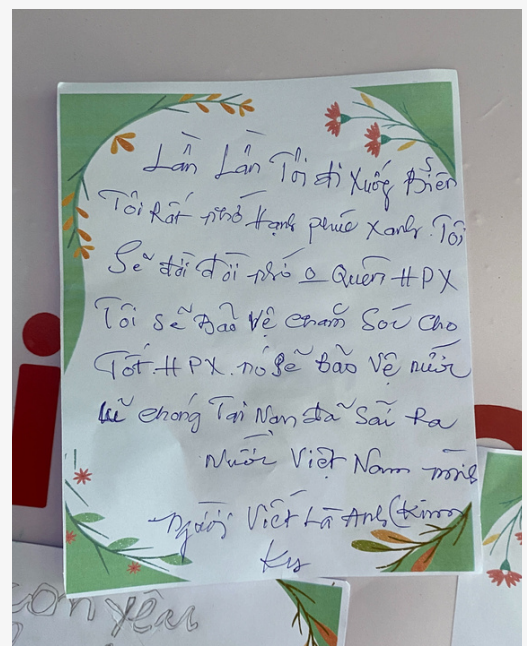 Lần Lần Tôi đi xuống Biển
Tôi Rất nhớ Hạnh phúc xanh. Tôi
Sẽ đời đời nhớ o Quên HPX
Tôi sẽ Bảo vệ chăm Sóc cho
Tốt. HPX. nó sẽ bảo vệ nước
lũ chống Tai Nạn đã Sãi Ra
Nước Việt Nam mình
Người Viết Là Anh (Kim
Ky
con yêu